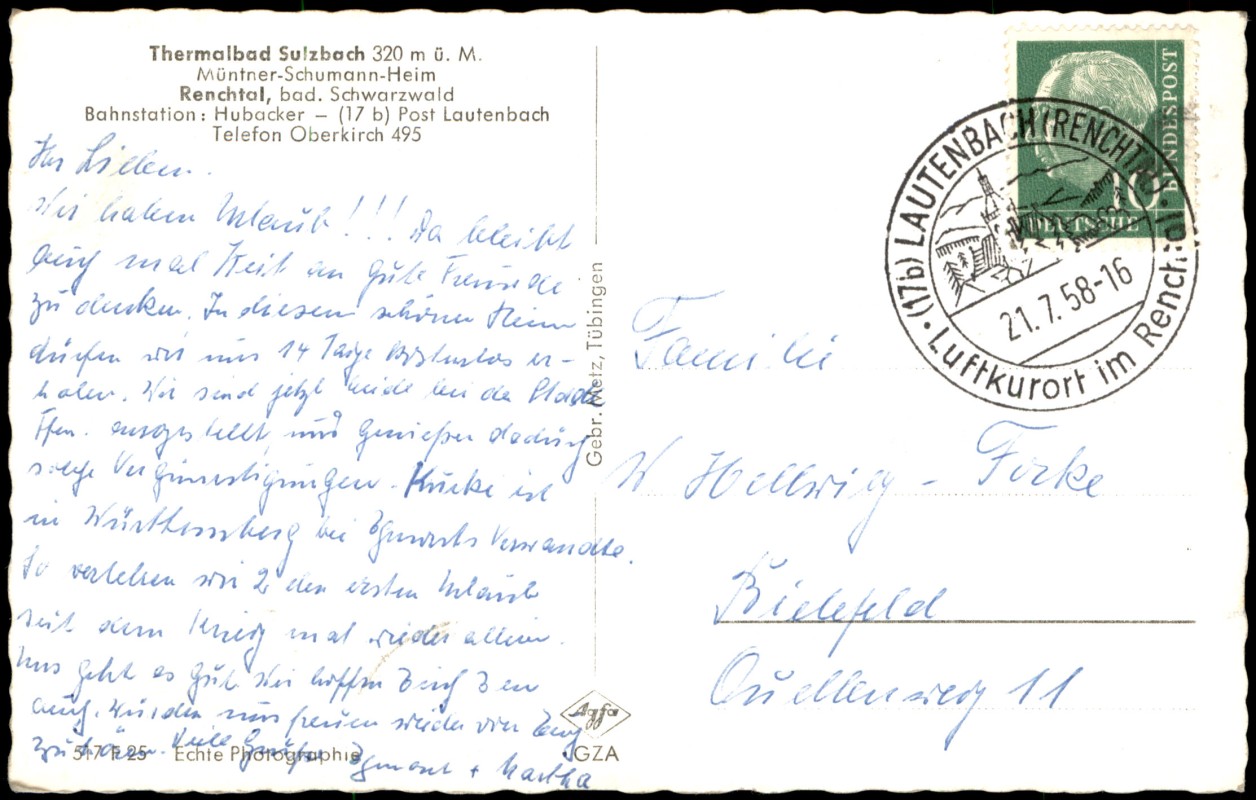 Thermalbad Sulzbach 320 m ü. M.
Müntner-Schumann-Heim
Renchtal, bad. Schwarzwald
Bahnstation: Hubacker – (17 b) Post Lautenbach
Telefon Oberkirch 495
Ihr Lieben.
Wir haben Urlaub!!! Da bleibt
auch mal Zeit an gute Freunde
zu denken. In diesem schönen Heim
dürfen wir uns 14 Tage kostenlos er-
holen. Wir sind jetzt beide bei der
angestellt, und genießen dadurch
solche Vergünstigungen. ist
in Württemberg bei Egmonts Verwandte.
So verleben wir 2 den ersten Urlaub
seit dem Krieg mal wieder allein.
Uns geht es gut. Wir hoffen Euch 3en
auch. Würden uns freuen wieder von Euch
zu hören. Viele Grüße Egmont + Martha
5-7 F 25 Echte Photographie
Gebr. Metz, Tübingen
Agfa
GZA
DEUTSCHE BUNDESPOST
10
(17b) LAUTENBACH (RENCHTAL)
21.7.58-16
Luftkurort im Renchtal
Familie
W Hellwig - Forke
Bielefeld
Quellenweg 11